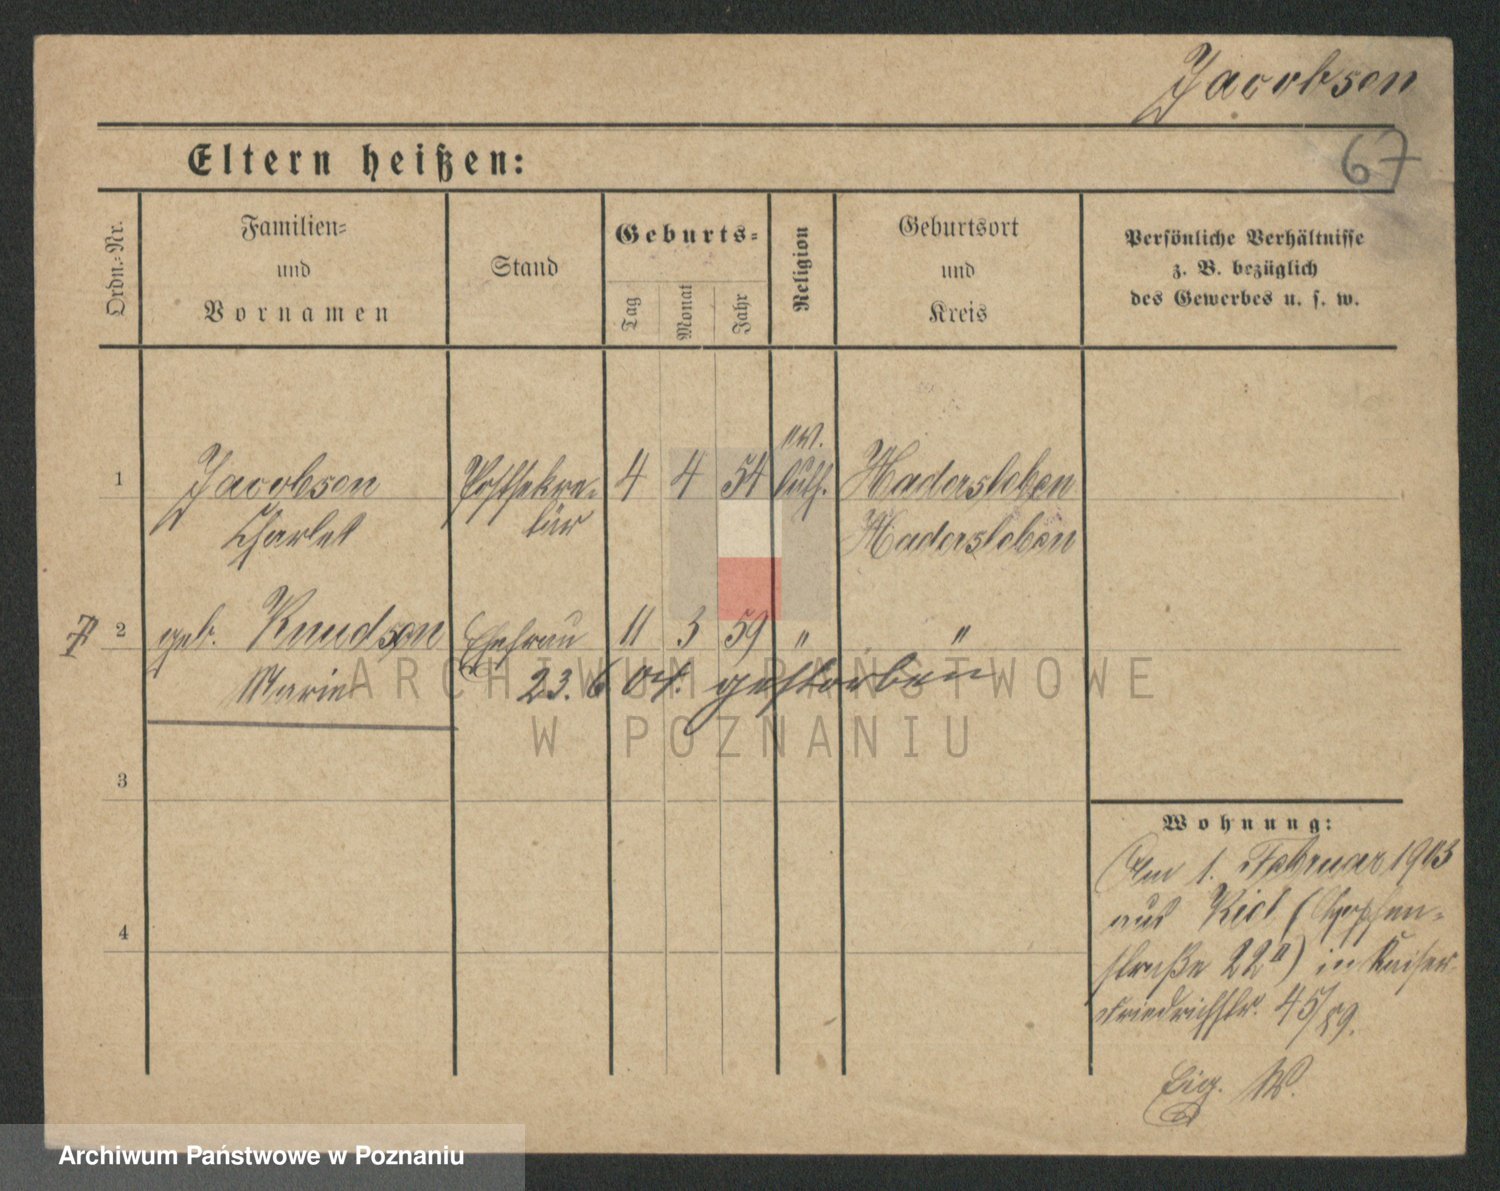 Jacobson
67
Eltern heißen:
Ordn.-Nr.
Familien-
und
Vornamen
Stand
Geburts-
Tag
Monat
Jahr
Religion
Geburtsort
und
Kreis
Persönliche Verhältnisse
z. B. bezüglich
des Gewerbes u. s. w.
1
Jacobson
Charles
Postsekre-
tär
4 4 54
ev.
luth.
Hadersleben
Hadersleben
2
geb. Knudson
Marie
Ehefrau
11 3 59 " "
23. 6 04. gestorben
3
4
Wohnung:
Am 1. Februar 1903
aus Kiel (
straße 22 II) in Kaiser
Friedrichstr. 45/59.
Eig. W.
ARCHIWUM PAŃSTWOWE
W POZNANIU
Archiwum Państwowe w Poznaniu